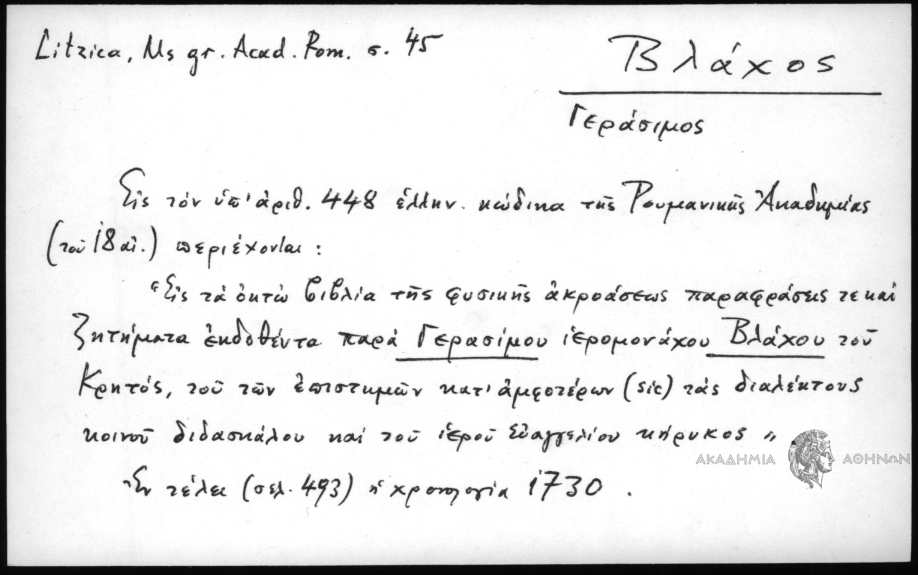 Litzica, Ms gr. Acad. Rom. σ. 45
Βλάχος
Γεράσιμος
Εἰς τὸν ὑπ' ἀριθ. 448 ἑλλην. κώδικα τῆς Ρουμανικῆς Ἀκαδημίας
(τοῦ 18 αἰ.) περιέχονται :
"Εἰς τὰ ὀκτὼ βιβλία τῆς φυσικῆς ἀκροάσεως παραφράσεις τε καὶ
ζητήματα ἐκδοθέντα παρὰ Γερασίμου ἱερομονάχου Βλάχου τοῦ
Κρητός, τοῦ τῶν ἐπιστημῶν κατ' ἀμφοτέρων (sic) τὰς διαλέκτους
κοινοῦ διδασκάλου καὶ τοῦ ἱεροῦ Εὐαγγελίου κήρυκος "
ΑΚΑΔΗΜΙΑ ΑΘΗΝΩΝ
Ἐν τέλει (σελ. 493) ἡ χρονολογία 1730 .